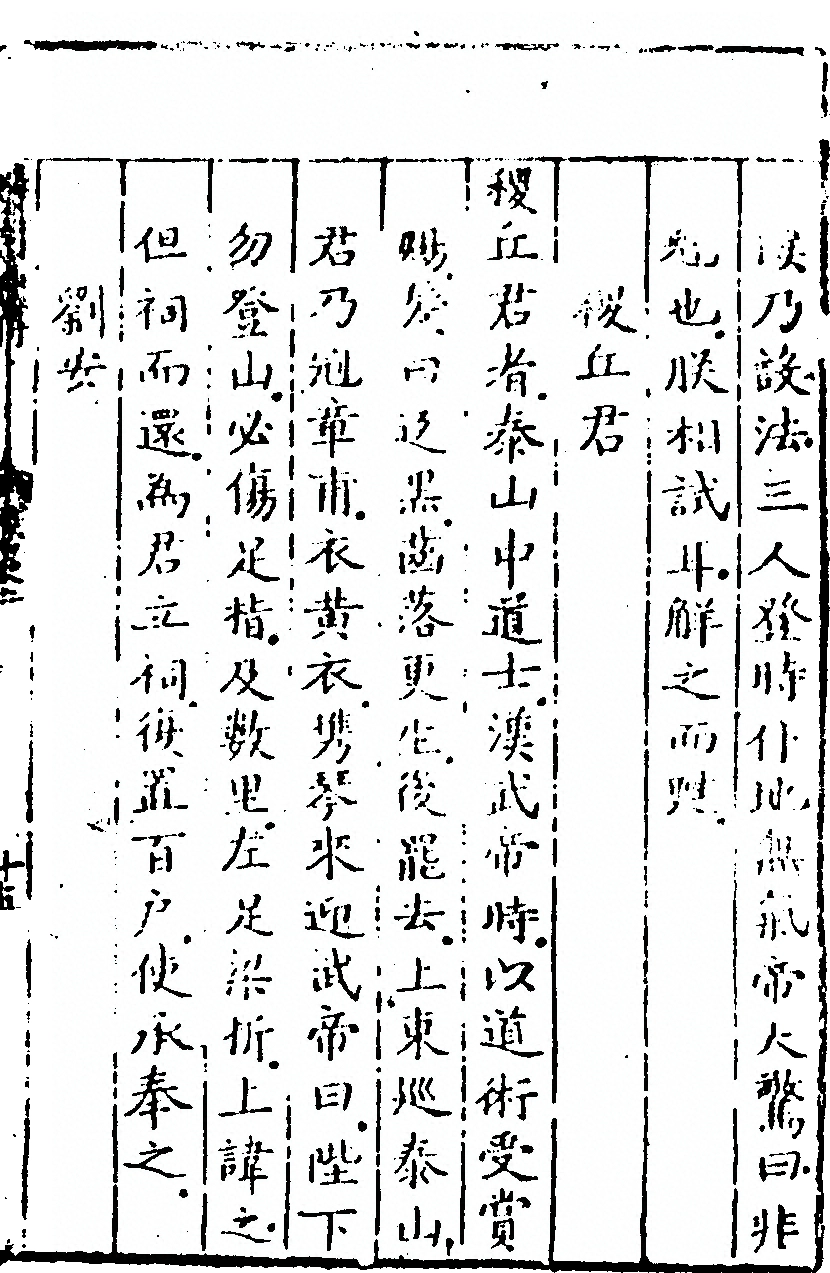 漢乃設法三人發時仆地無氣帝大驚曰非
鬼也朕相試耳解之而甦
稷丘君
稷丘君者泰山中道士漢武帝時以道術受賞
賜髮白返黑齒落更生後罷去上東巡泰山
君乃冠章甫衣黃衣攜琴來迎武帝曰陛下
勿登山必傷足指及數里左足梁折上諱之
但祠而還為君立祠復置百戶使承奉之
劉
十五